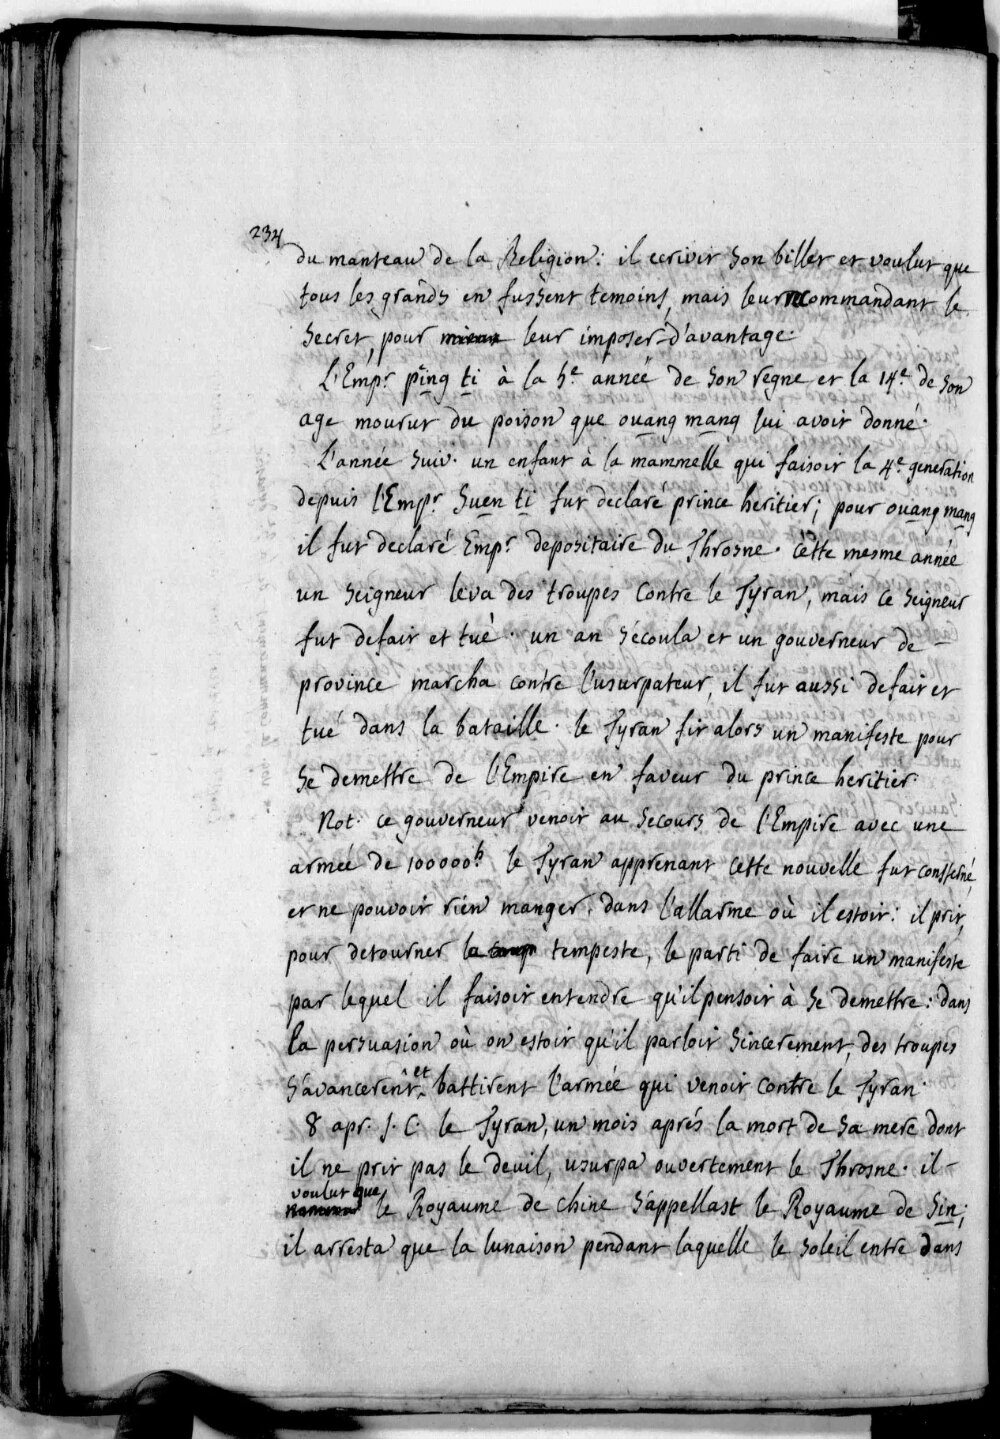 234
du manteau de la Religion: il ecrivit son billet et voulut que
tous les grands en fussent temoins, mais leur recommandant le
secret, pour mieux leur imposer d'avantage.
L'Empr ping ti à la 5e année de son regne et la 14e de son
age mourut du poison que ouang mang lui avoit donné.
L'année suiv. un enfant à la mammelle qui faisoit la 4e generation
depuis l'Empr Suen ti fut declaré prince heritier; pour ouang mang
il fut declaré Empr depositaire du Throsne. cette mesme année
un seigneur leva des troupes contre le Tyran, mais ce seigneur
fut defait et tué. un an s'écoula et un gouverneur de
province marcha contre l'usurpateur, il fut aussi defait et
tué dans la bataille. le Tyran fit alors un manifeste pour
se demettre de l'Empire en faveur du prince heritier.
Not. ce gouverneur venoit au secours de l'Empire avec une
armée de 100000 h. le Tyran apprenant cette nouvelle fut consterné,
et ne pouvoit rien manger. dans l'allarme où il estoit: il prit,
pour detourner la temp tempeste, le parti de faire un manifeste
par lequel il faisoit entendre qu'il pensoit à se demettre: dans
la persuasion où on estoit qu'il parloit sincerement, des troupes
s'avancerent et battirent l'armée qui venoit contre le Tyran.
8 apr. J. C. le Tyran, un mois aprés la mort de sa mere dont
il ne prit pas le deuil, usurpa ouvertement le Throsne. il
voulut que
le Royaume de chine s'appellast le Royaume de Sin;
il arresta que la lunaison pendant laquelle le soleil entre dans